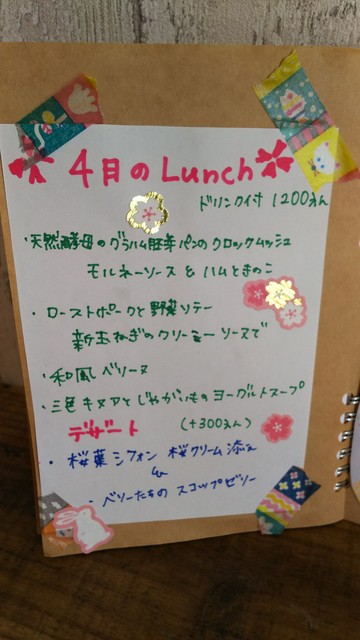 4月のLunch
ドリンク付 1200えん
・天然酵母のグラハム胚芽パンのクロックムッシュ
モルネーソース & ハムときのこ
・ローストポークと野菜ソテー
新玉ねぎのクリーミーソースで
・和風ベリーヌ
・三色キヌアとじゃがいものヨーグルトスープ
デザート (+300えん)
・桜葉シフォン 桜クリーム添え
・ベリーたちの スコップゼリー